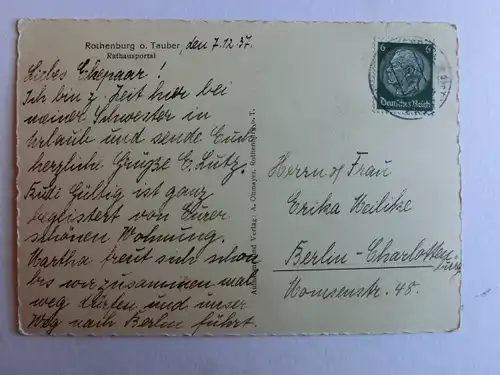 Rothenburg o. Tauber, den 7.12.37.
Rathausportal
Liebes Ehepaar!
Ich bin z. Zeit hier bei
meiner Schwester in
Urlaub und sende Euch
herzliche Grüße E. Lutz.
Rudi Gültig ist ganz
begeistert von Eurer
schönen Wohnung.
Martha freut sich schon
bis wir zusammen mal
weg dürfen und unser
Weg nach Berlin führt.
Verlag: A. Ohmayer, Rothenburg o. T.
6 6
Deutsches Reich
Herrn & Frau
Erika Weilike
Berlin-Charlotten
burg
Momsenstr. 45.